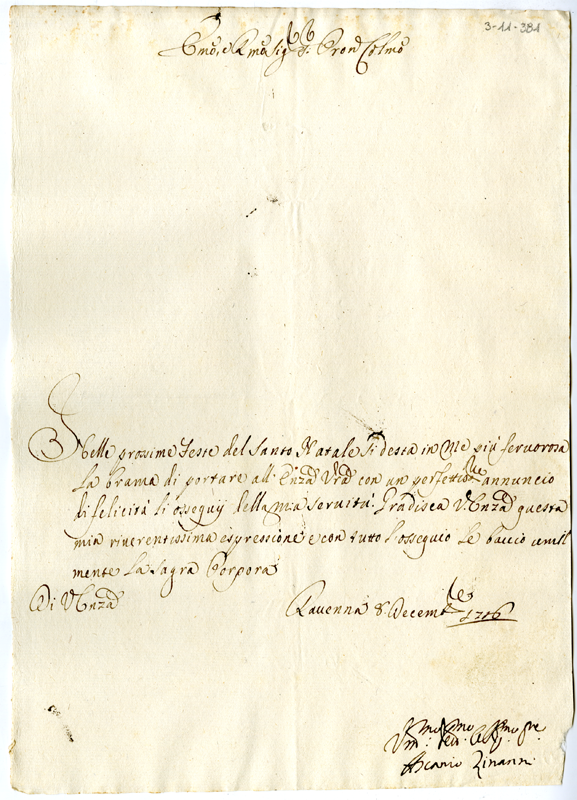 3-11-381
Emo, e Rmo Sig.r Pron Colmo
Nelle prossime feste del Santo Natale si desta in me più fervorosa
la brama di portare all'Enza Vra con un perfettiss.mo annuncio
di felicità li ossequij della mia servitù. Gradisca V. Enza questa
mia riverentissima espressione e con tutto l'ossequio le baccio umil
mente la Sagra Porpora
Di V. Enza
Ravenna 8. Decemb.re 1706
Vmo
Ascanio Zinanni